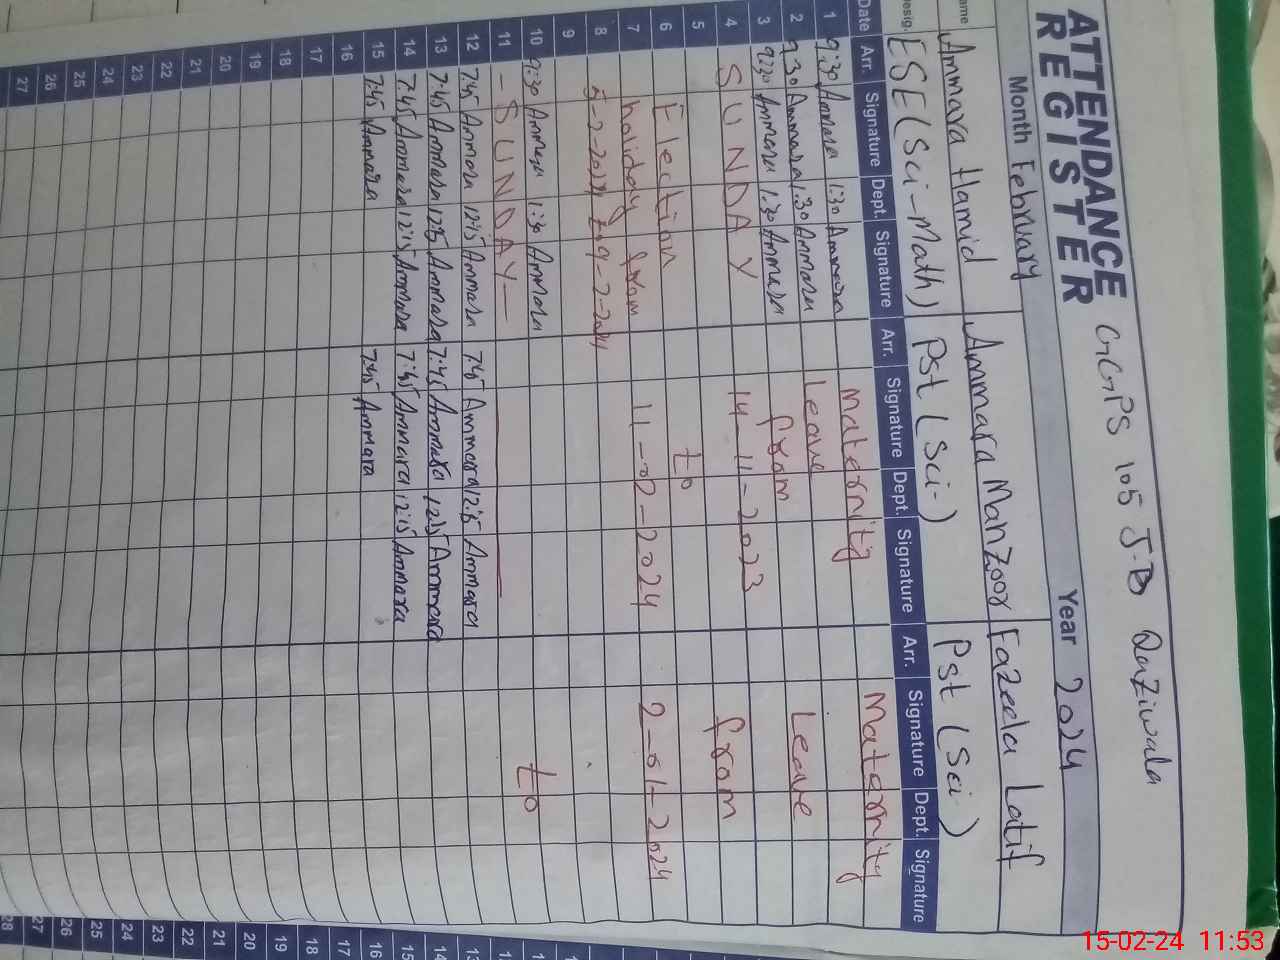 ATTENDANCE GGPS 105 J.B
REGISTER
Month February Year 2024
Name Ammara Hamid Ammara Manzoor Fazeela Latif
Desig. ESE (Sci-Math) Pst (Sci-) Pst (Sci)
Date Arr. Signature Dept. Signature Arr. Signature Dept. Signature Arr. Signature Dept. Signature
1 9:30 Ammara 1:30 Ammara Maternity Maternity
2 9:30 Ammara 1:30 Ammara Leave Leave
3 9:30 Ammara 1:30 Ammara from
4 SUNDAY 14-11-2023 from
5 to
6 Election
7 holiday from 11-02-2024 2-01-2024
8 5-2-2024 to 9-2-2024
9
10 9:30 Ammara 1:30 Ammara to
11 - SUNDAY -
12 7:45 Ammara 12:15 Ammara 7:45 Ammara 12:15 Ammara
13 7:45 Ammara 12:15 Ammara 7:45 Ammara 12:15 Ammara
14 7:45 Ammara 12:15 Ammara 7:45 Ammara 12:15 Ammara
15 7:45 Ammara 7:45 Ammara
16
17
18
19
20
21
22
23
24
25
26
27
15-02-24 11:53